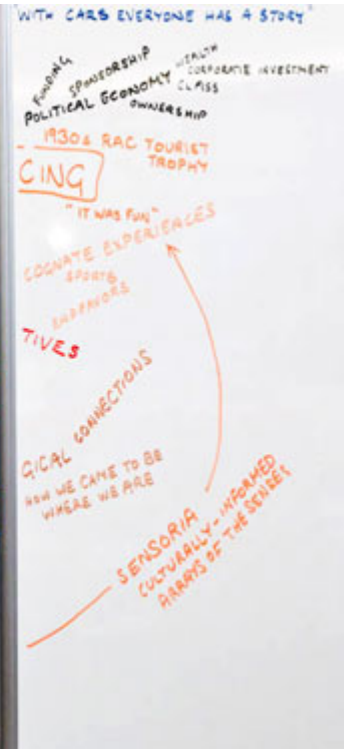 "WITH CARS EVERYONE HAS A STORY"
FUNDING
SPONSORSHIP
WEALTH
POLITICAL ECONOMY
CORPORATE INVESTMENT
CLASS
OWNERSHIP
1930s RAC TOURIST
TROPHY
CING
"IT WAS FUN"
COGNATE EXPERIENCES
SPORTS
ENDEAVORS
TIVES
GICAL CONNECTIONS
HOW WE CAME TO BE
WHERE WE ARE
SENSORIA
CULTURALLY-INFORMED
ARRAYS OF THE SENSES